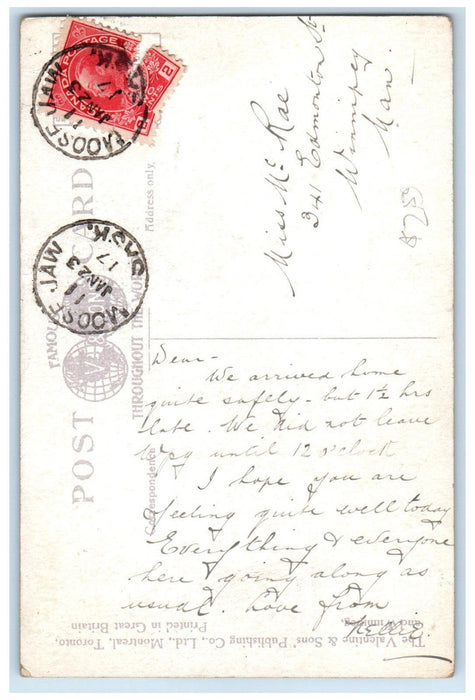 CANADA POSTAGE
2 CENTS
MOOSE JAW
11
JAN 23
17
SASK.
MOOSE JAW
11
JAN 23
17
SASK.
POST CARD
FAMOUS
THROUGHOUT THE WORLD
Address only.
Correspondence
Miss Mc Rae
341 Edmonton St
Winnipeg
Man.
$7.50
Dear-
We arrived home
quite safely - but 1½ hrs
late. We did not leave
Wpg until 12 o'clock
I hope you are
feeling quite well today
Everything & everyone
here going along as
usual. Love from
Nellie.
The Valentine & Sons' Publishing Co., Ltd., Montreal, Toronto,
and Winnipeg
Printed in Great Britain